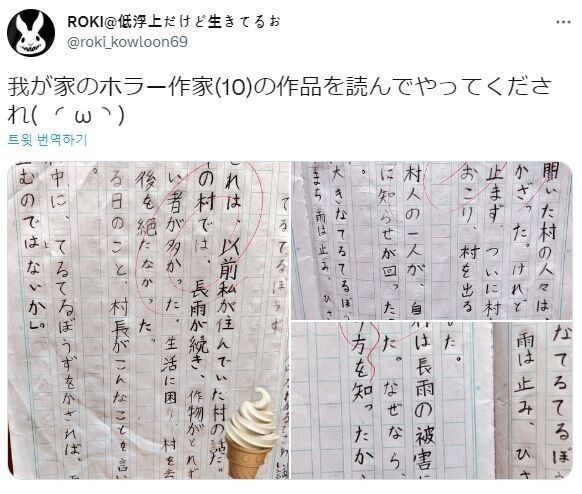 ROKI@低浮上だけど生きてるお
@roki_kowloon69
我が家のホラー作家(10)の作品を読んでやってくださ
れ( ◜ω◝ )
트윗 번역하기
てるてるぼうず
れは、以前私が住んでいた村の話だ。
の村では、長雨が続き、作物がとれず
い者が多かった。生活に困り、村を去
後を絶たなかった。
る日のこと、村長がこんなことを言い
。
中に、てるてるぼうずをかざれば、
むのではないか」。
聞いた村の人々は、
かざった。けれど
止まず、ついに村
おこり、村を出る
村人の一人が、自
に知らせが回った
。
大きなてるてるぼう
まち雨は止み、ひさ
た。
は長雨の被害に
た。なぜなら、
方を知ったから
なてるてるぼう
雨は止み、ひさ